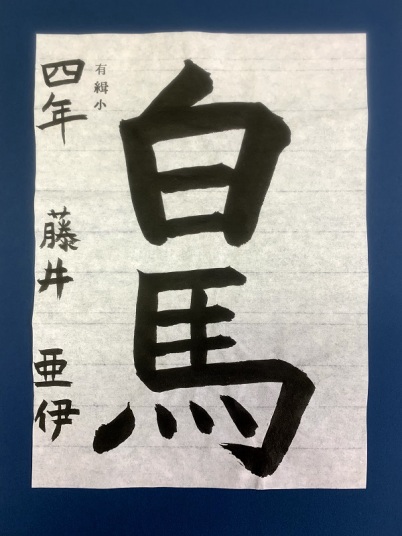 白馬
有緝小
四年 藤井 亜伊